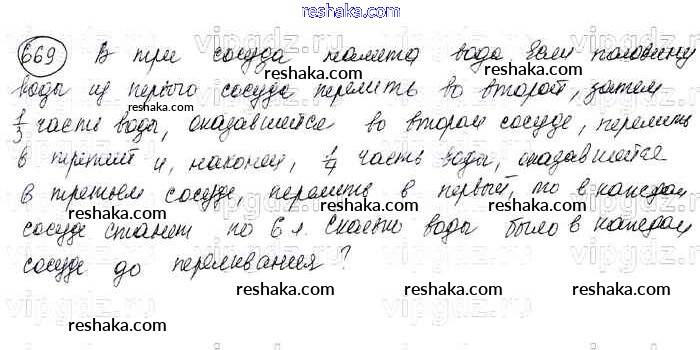 reshaka.com
669 В три сосуда налита вода. Если половину
воды из первого сосуда перелить во второй, затем
1/3 часть воды, оказавшейся во втором сосуде, перелить
в третий и, наконец, 1/4 часть воды, оказавшейся
в третьем сосуде, перелить в первый, то в каждом
сосуде станет по 6 л. Сколько воды было в каждом
сосуде до переливания?
reshaka.com
reshaka.com
reshaka.com
reshaka.com
reshaka.com
reshaka.com
reshaka.com
reshaka.com
reshaka.com
reshaka.com
reshaka.com
reshaka.com
reshaka.com
reshaka.com